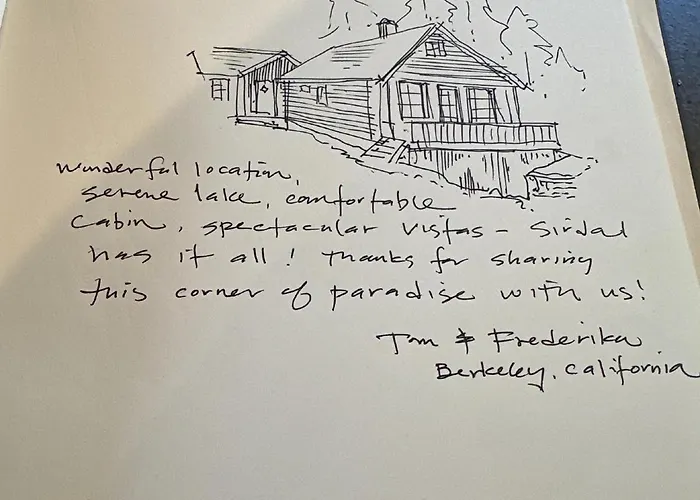 wonderful location,
serene lake, comfortable
cabin, spectacular vistas - Sirdal
has it all! Thanks for sharing
this corner of paradise with us!
Tom & Frederika
Berkeley, California